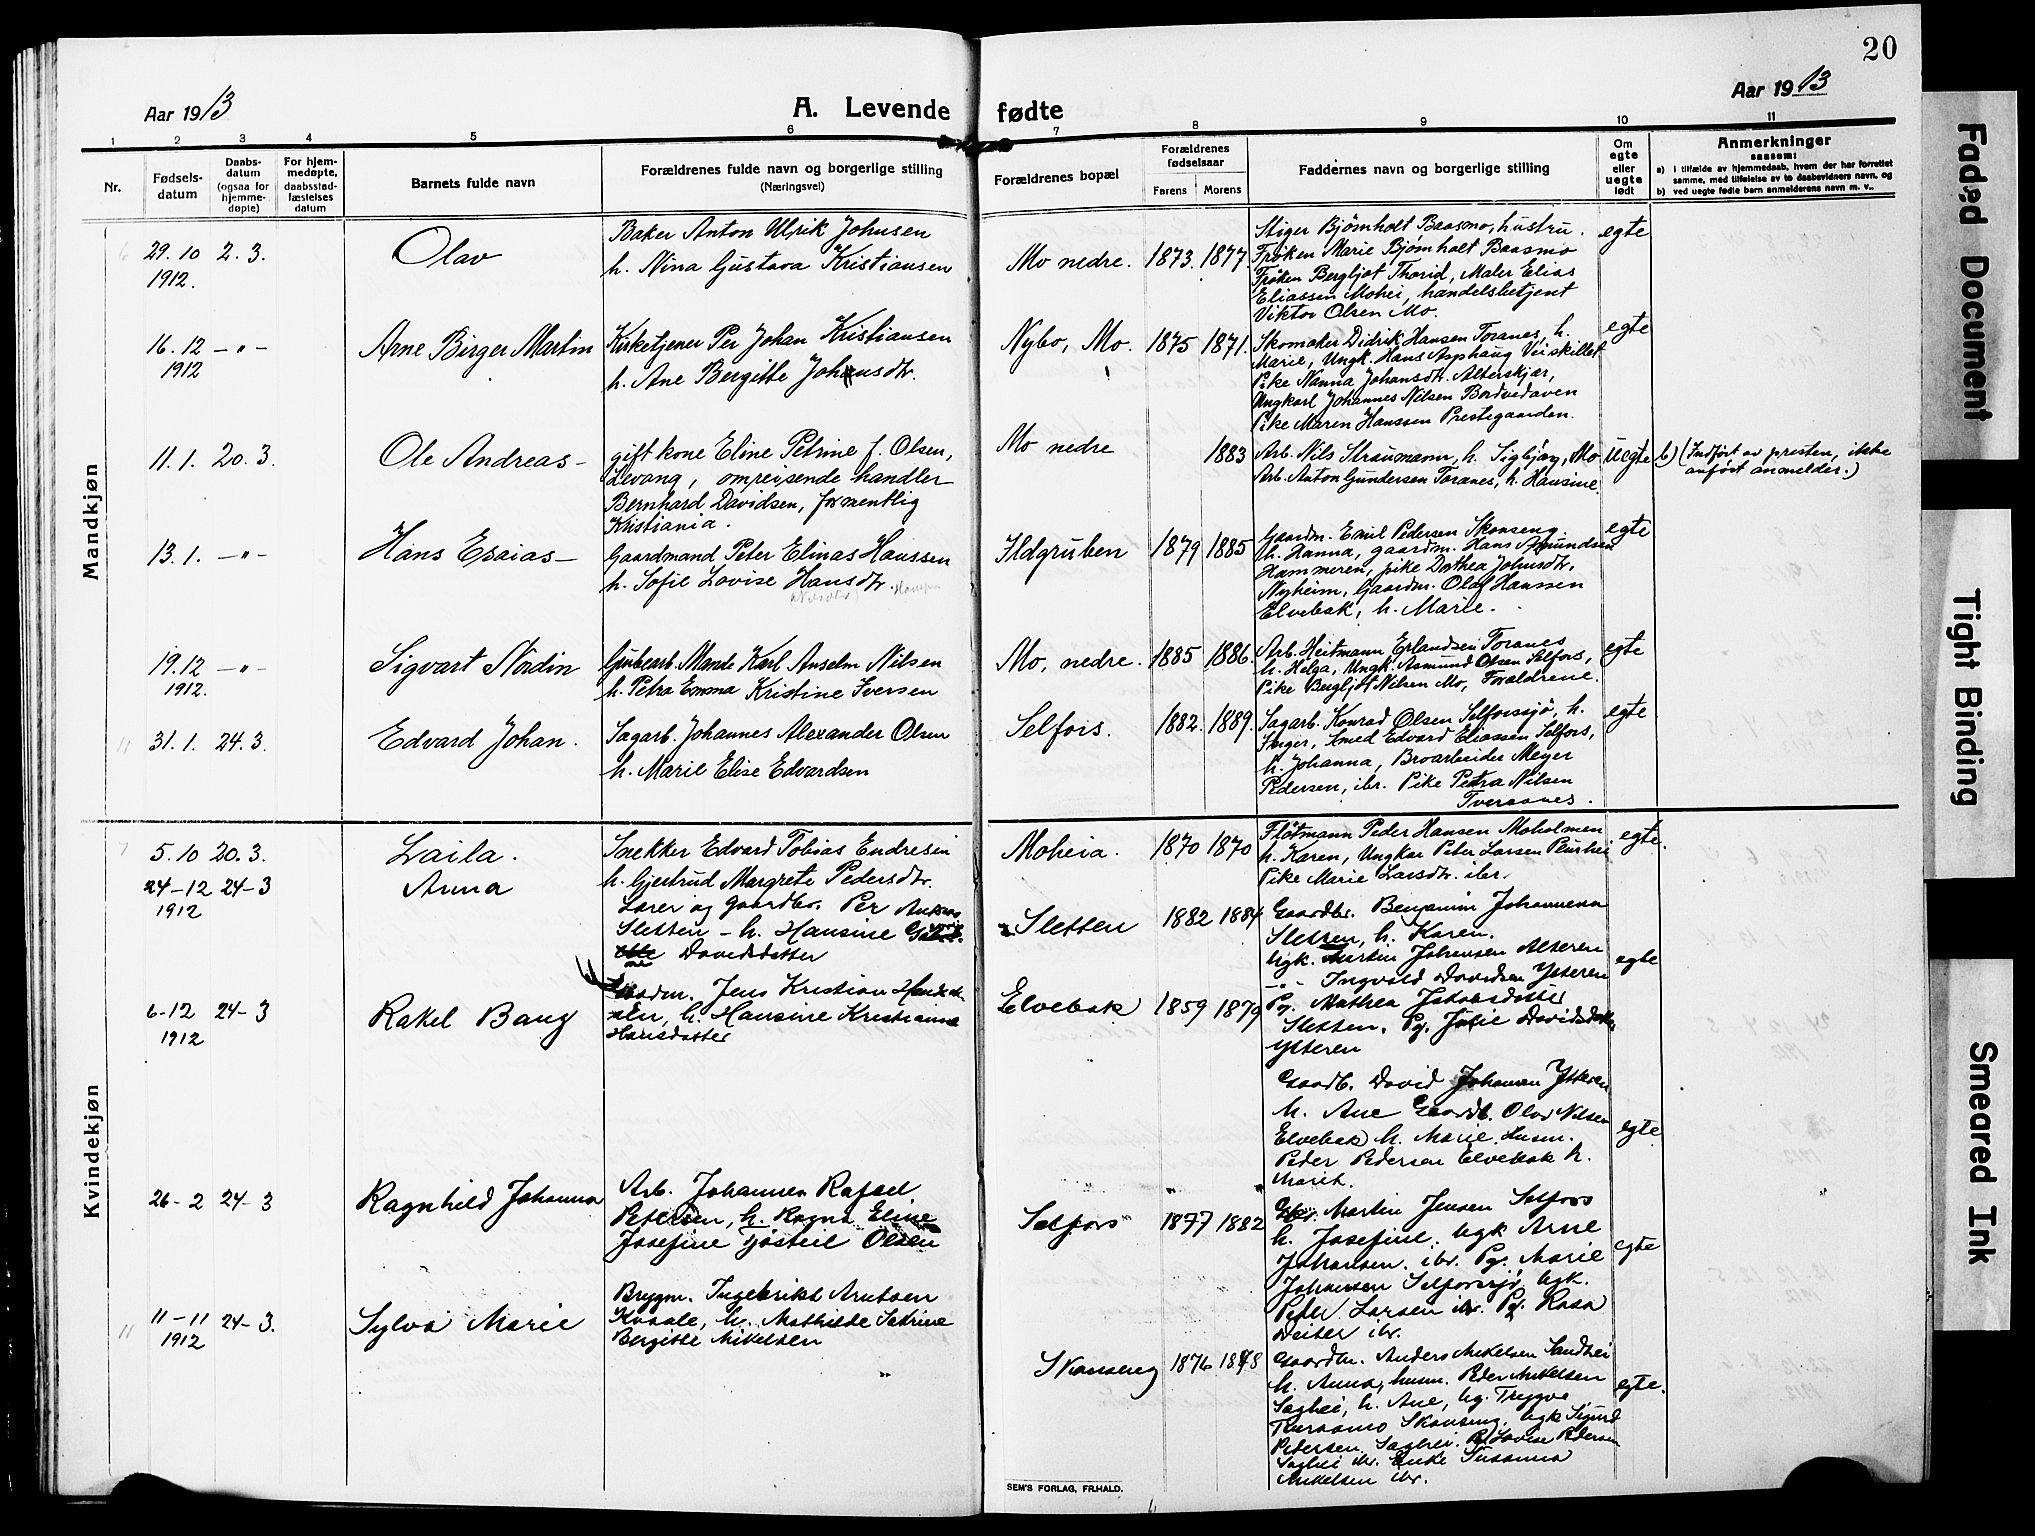 20
Aar 1913
A. Levende
fødte
Aar 1913
1 2 3 4 5 6 7 8 9 10 11
Nr.
Fødsels-
datum
Daabs-
datum
(ogsaa for
hjemme-
døpte)
For hjem-
medøpte,
daabsstad-
fæstelses
datum
Barnets fulde navn
Forældrenes fulde navn og borgerlige stilling
(Næringsvei)
Forældrenes bopæl
Forældrenes
fødselsaar
Farens Morens
Faddernes navn og borgerlige stilling
Om
egte
eller
uegte
født
Anmerkninger
saasom:
a) i tilfælde av hjemmedaab, hvem der har forrettet
samme, med tilføielse av to daabsvidners navn, og
b) ved uegte fødte barn anmelderens navn m. v..
Mandkjøn
29.10
1912.
2.3.
Olav
Baker Anton Ulrik Johnsen
h. Nina Gustava Kristiansen
Mo nedre. 1873. 1877.
Stiger Bjørnholt Baasmo, hustru.
Frøken Marie Bjørnholt Baasmo
Frøken Bergljot Thorid, Maler Elias
Eliassen Mohei, handelsbetjent
Viktor Olsen Mo.
egte
16.12
1912
-"-
Arne Birger Martin
Kirketjener Per Johan Kristiansen
h. Ane Bergitte Johansdtr.
Nybo, Mo. 1875 1871.
Skomaker Didrik Hansen Toranes, h.
Marie, Ungk. Hans Asphaug Veiskillet
Pike Nanna Johansdtr. Alterskjær,
Ungkarl Johannes Nilsen Bordvedaven
Pike Maren Hanssen Prestegaarden.
egte
11.1. 20.3.
Ole Andreas-
gift kone Eline Petrine f. Olsen,
Levang, omreisende handler
Bernhard Davidsen, formentlig
Kristiania.
Mo nedre
1883
Arb. Nils Straumann, h. Sigbjøy, Mo
Arb. Anton Gundersen Toranes, h. Hansine.
uegte
b) (Indført av presten, ikke
anført anmelder.)
13.1. -"-
Hans Esaias-
Gaardmand Peter Elinas Hanssen
h. Sofie Lovise Hansdtr.
Ildgruben 1879 1885
Gaardm. Emil Pedersen Skonseng
h. Hanna, gaardm. Hans Amundsen
Hammeren, pike Dorthea Johnsdtr.
Nyheim, Gaardm. Olaf Hanssen
Elvebak, h. Marie.
egte
19.12
1912.
-"-
Sigvart Nordin
Grubearb. Mande Karl Anselm Nilsen
h. Petra Emma Kristine Iversen
Mo, nedre. 1885 1886.
Arb. Heitmann Erlandsen Toranes
h. Helga, Ungk. Asmund Olsen Selfors,
Pike Bergljot Nilsen Mo, Forældrene.
egte
11 31.1. 24.3.
Edvard Johan.
Sagarb. Johannes Alexander Olsen
h. Marie Elise Edvardsen
Selfors. 1882. 1889.
Sagarb. Konrad Olsen Selforssjø, h.
Inger, Smed Edvard Eliassen Selfors,
h. Johanna, Broarbeider Meyer
Pedersen, ibr. Pike Petra Nilsen
Tveraanes.
egte
Kvindekjøn
7 5.10 20.3.
Laila.
Snekker Edvard Tobias Endresen
h. Gjertrud Margrete Pedersdtr.
Moheia. 1870 1870
Fløtmann Peder Hansen Moholmen
h. Karen, Ungkar Peter Larsen
Pike Marie Larsdtr. ibr.
egte.
24-12 24-3
1912
Anna
Lærer og gaardbr. Per
Sletten - h. Hansine
Davidsdatter
Sletten 1882 1884
Gaardbr. Benjamin Johannesen
Sletten, h. Karen.
Ugk. Martin Johansen Alteren
-"- Ingvald Davidsen Ytteren
Pg. Mathea
Sletten, Pg. Julie Davidsdatter
Ytteren
egte
6-12 24-3
1912
Rakel Bang
Gaardm. Jens Kristian
h. Hansine Kristianne
Hansdatter
Elvebak 1859 1879
Gaardb. David Johansen Ytteren
h. Ane Gaardb. Olav Nilsen
Elvebak h. Marie. Husm.
Peder Pedersen Elvebak h.
Marit.
egte
26-2 24-3
Ragnhild Johanna
Arb. Johannes Rafael
Petersen, h. Ragna Eline
Josefine Olsen
Selfors 1877 1882
Martin Jensen Selfors
h. Josefine, Ugk Arne
Johansen ibr. Pg. Marie
Johansen Selforssjø, Ugk.
Peter Larsen ibr. Pg. Rosa
ibr.
egte
11 11-11 24-3.
1912
Sylva Marie
Brygm. Ingebrikt Arntsen
h. Mathilde
Bergitte Mikelsen
Skonseng 1876 1878
Gaardbr. Anders Mikelsen Sandhei
h. Anna, husm. Peder Mikelsen
Saghei, h. Ane, Ug. Trygve
Tveraamo Skonseng, Ugk Sigurd
Petersen Saghei. Pg Lovise Pedersen
Saghei ibr. Enke Susanna
Mikelsen ibr.
egte.
SEM'S FORLAG, FR.HALD.
Faded Document
Tight Binding
Smeared Ink